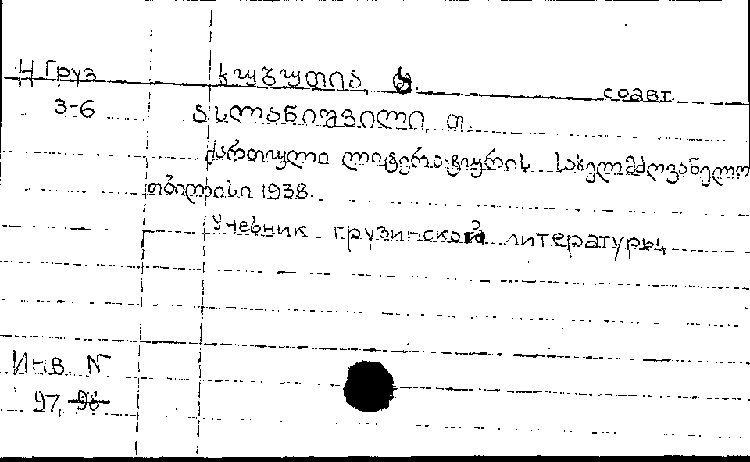 Н Груз
3-6
კუბუთია, ნ. соавт.
ასლანიშვილი, თ.
ქართული ლიტერატურის სახელმძღვანელო
თბილისი 1938.
Учебник грузинской литературы
Инв. N
97, 96